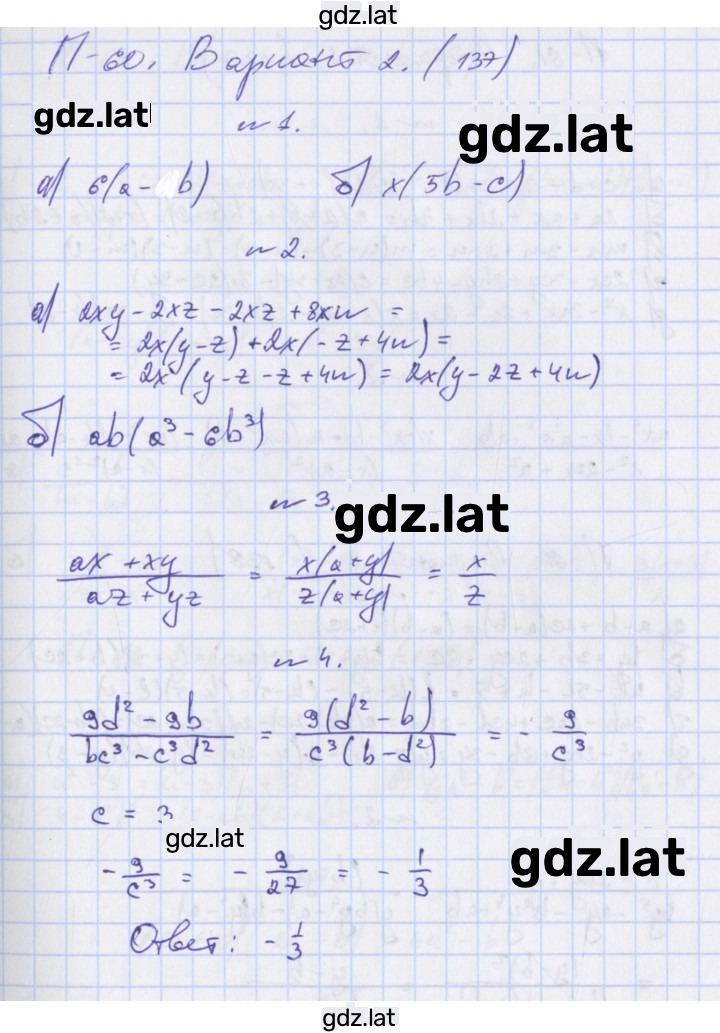 gdz.lat
П-60. Вариант 2. (137)
gdz.lat
n 1.
gdz.lat
а) 6(a - b) б) x(5b - c)
n 2.
а) 2xy - 2xz - 2xz + 8xn =
= 2x(y - z) + 2x(-z + 4n) =
= 2x (y - z - z + 4n) = 2x(y - 2z + 4n)
б) ab(a³ - 6b³)
n 3.
gdz.lat
(ax + xy)/(az + yz) = x(a+y)/z(a+y) = x/z
n 4.
(9d² - 9b)/(bc³ - c³d²) = 9(d² - b)/c³(b - d²) = - 9/c³
c = 3
gdz.lat
- 9/c³ = - 9/27 = - 1/3
gdz.lat
Ответ: - 1/3
gdz.lat